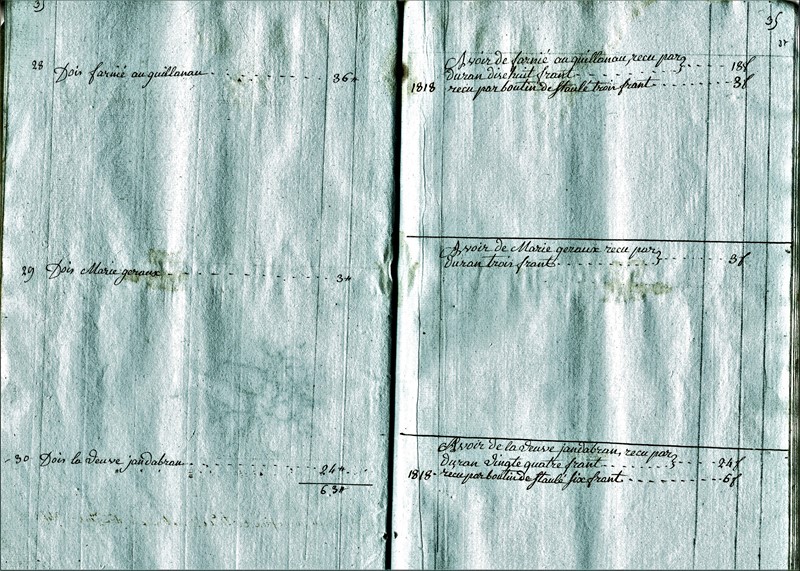 35
28 Dois farnié au guillanau 36#
29 Dois Marie geraux 3#
30 Dois la veuve jandabran 24#
63#
35
Avoir de farnié au guillanau, recu par
duran dixhuit frant 18f
1818 recu par boutin de staule trois frant 3f
Avoir de Marie geraux recu par
duran trois frant 3f
Avoir de la veuve jandabran, recu par
duran vingte quatre frant 24f
1818 recu par boutin de staule six frant 6f